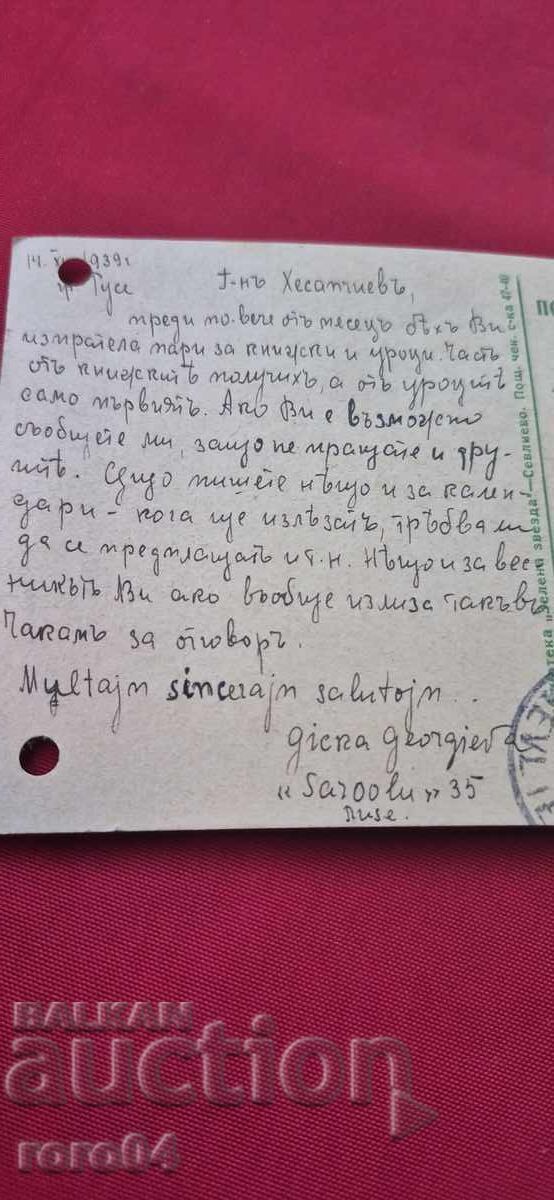 14. 1939 г
гр Русе
Г-нъ Хесапчиевъ,
преди по-вече отъ месецъ бѣхъ Ви
изпратела пари за книжки и уроци. Часть
отъ книжкитѣ получихъ, а отъ уроцитѣ
само първиятъ. Ако Ви е възможно
съобщете ми, защо не пращате и дру-
гитѣ. Също пишете нѣщо и за кален-
дари - кога ще излѣзатъ, трѣбва ли
да се предплащатъ и т.н. Нѣщо и за вес-
никътъ Ви ако въобще излиза такъвъ
Чакамъ за отговоръ.
Multajn sincerajn salutojn..
Georgieva
" 35
Ruse.
ПО
тека „Зелена звезда“ – Севлиево. Пощ. чек. с-ка 47-40
BALKAN
auction
roro04